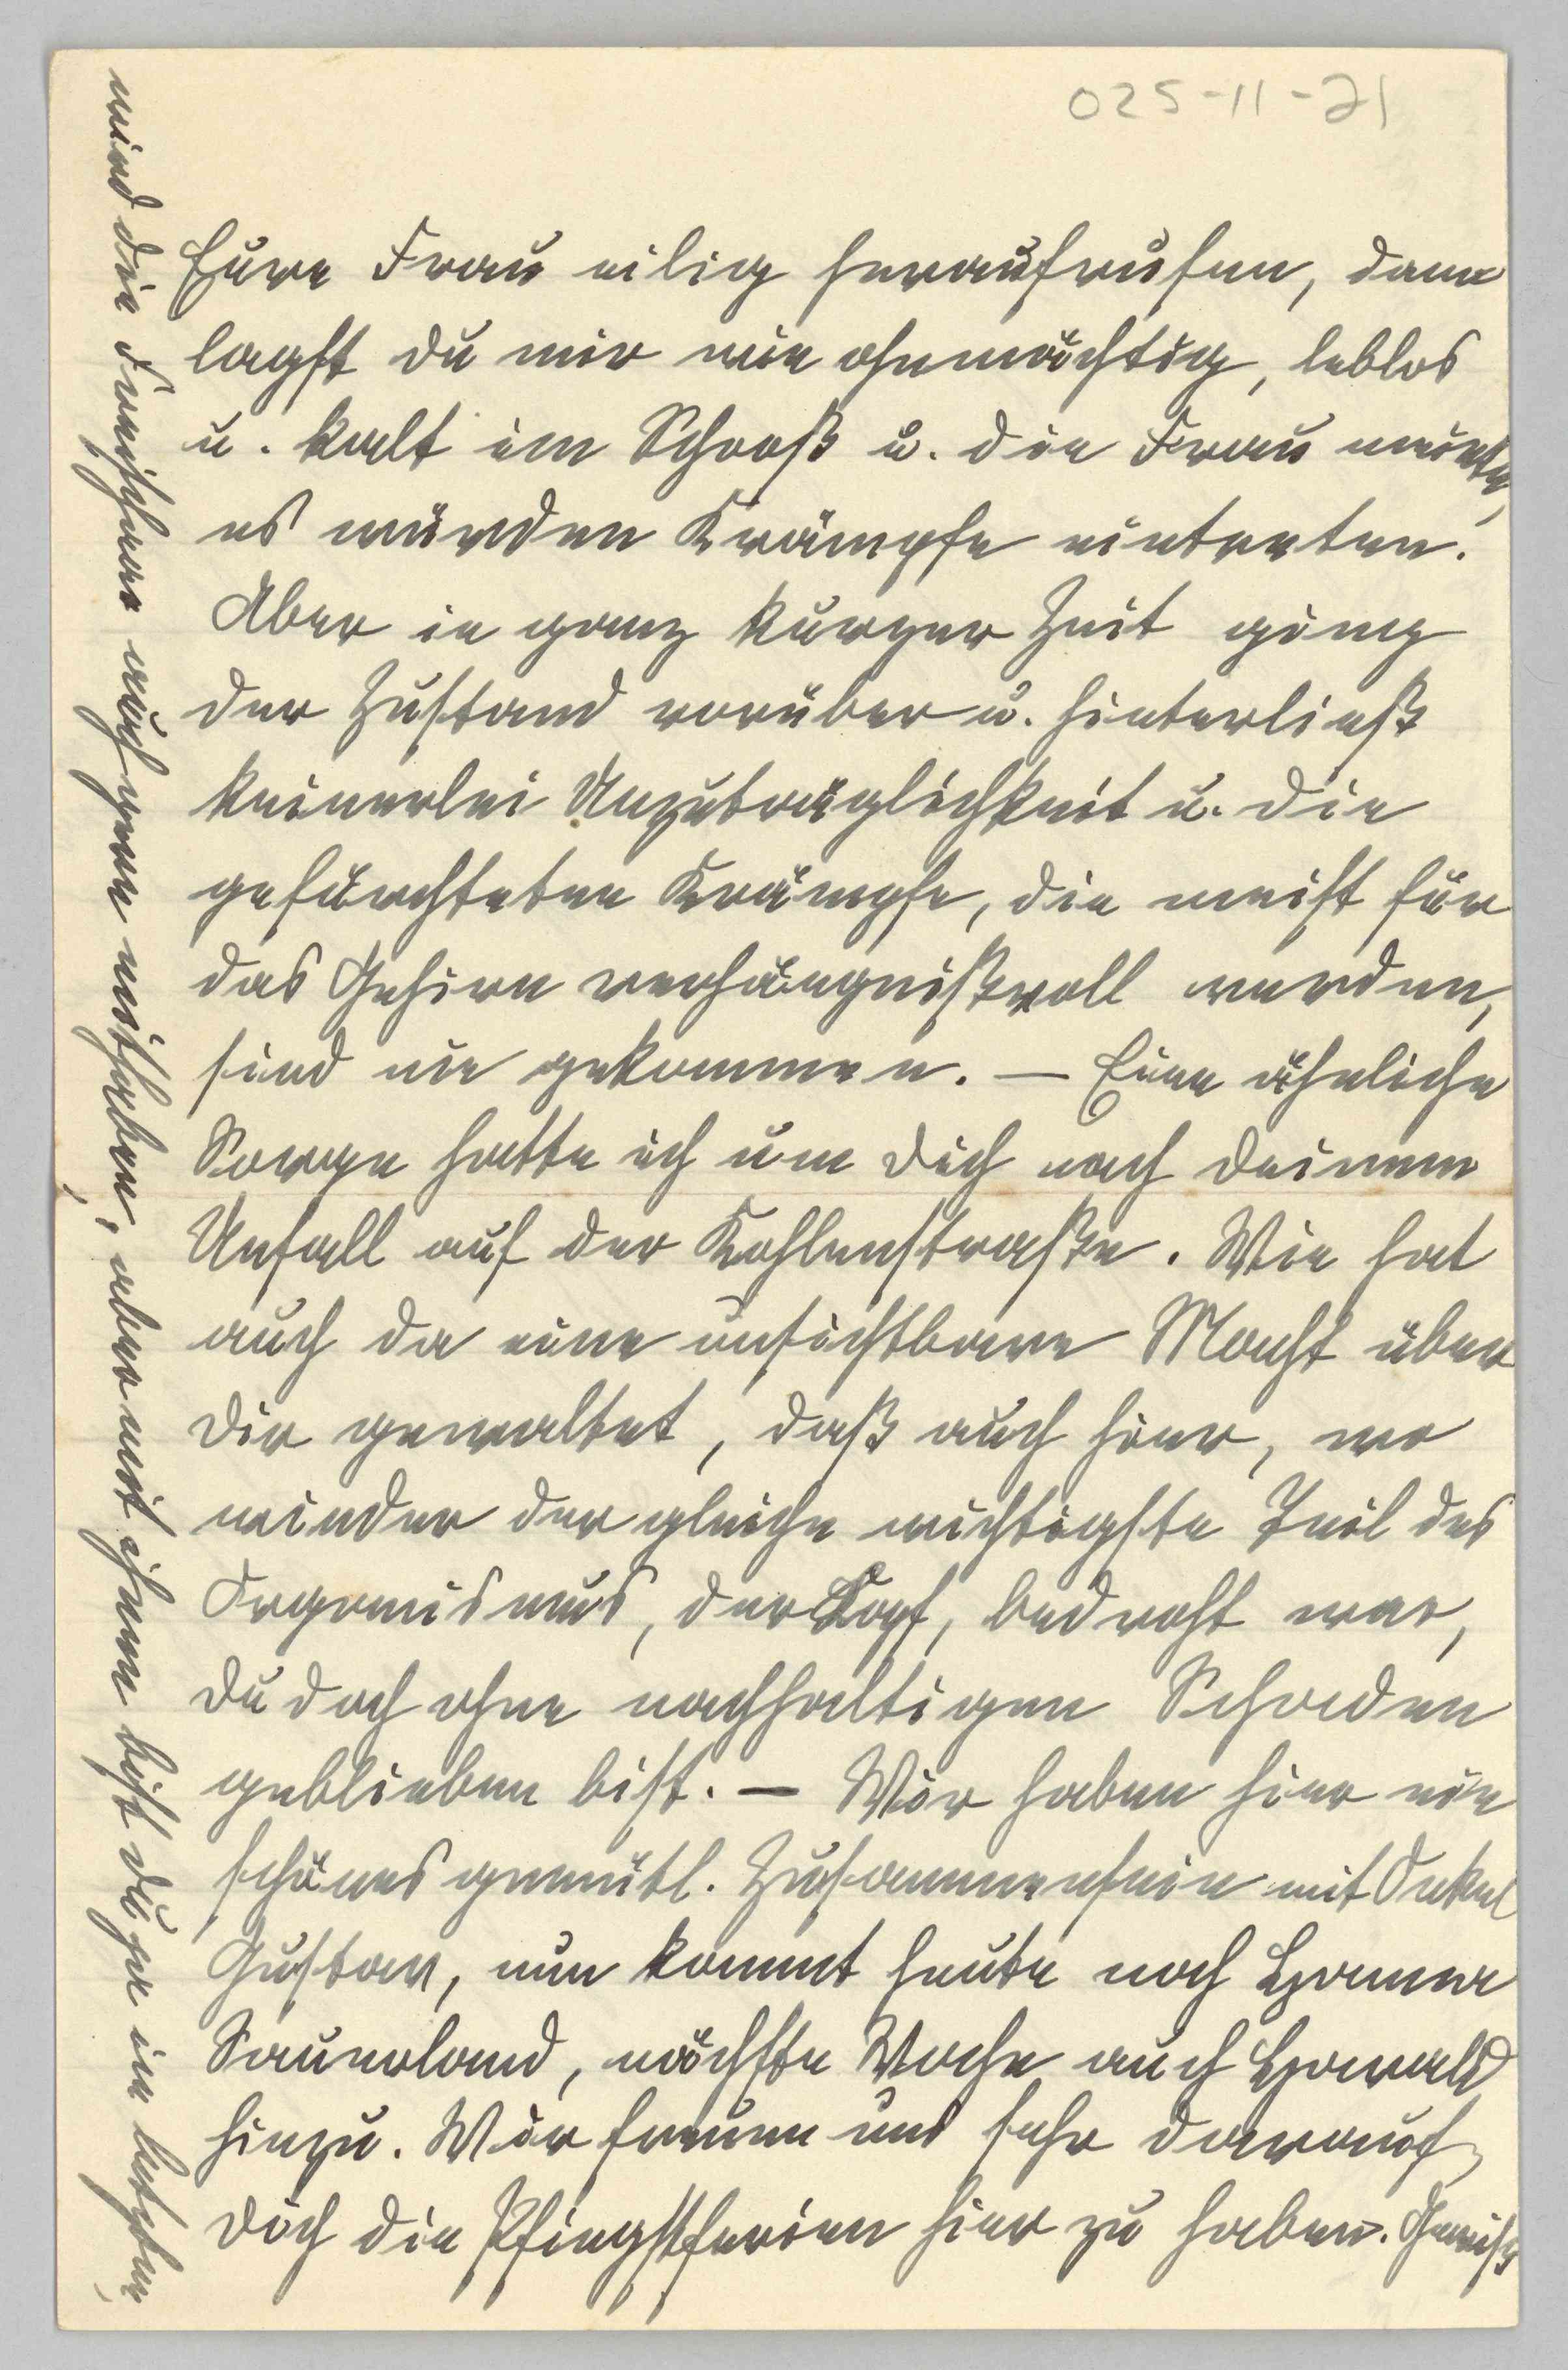 025-11-21
Eure Frau eilig heraufrufen, dann
lagst du mir wie ohnmächtig, leblos
u. kalt im Schooß u. die Frau meinte,
es würden Krämpfe eintreten.
Aber in ganz kurzer Zeit ging
der Zustand vorüber u. hinterließ
keinerlei Unzuträglichkeit u. die
gefürchteten Krämpfe, die meist für
das Gehirn verhängnißvoll werden,
sind nie gekommen. — Eine ähnliche
Sorge hatte ich um dich nach deinem
Unfall auf der Kohlenstraße. Wie hat
auch da eine unsichtbare Macht über
dir gewaltet, daß auch hier, wo
wieder der gleiche wichtigste Teil des
Organismus, der Kopf, bedroht war,
du doch ohne nachhaltigen Schaden
geblieben bist. — Wir haben hier ein
schönes gemütl. Zusammensein mit Onkel
Gustav, nun kommt heute noch
Sauerland, nächste Woche auch
hinzu. Wir freuen uns sehr darauf,
dich die Pfingstferien hier zu haben. Gewiß
wird die auch gern mithaben, aber mit ihnen bist du ja in letzter